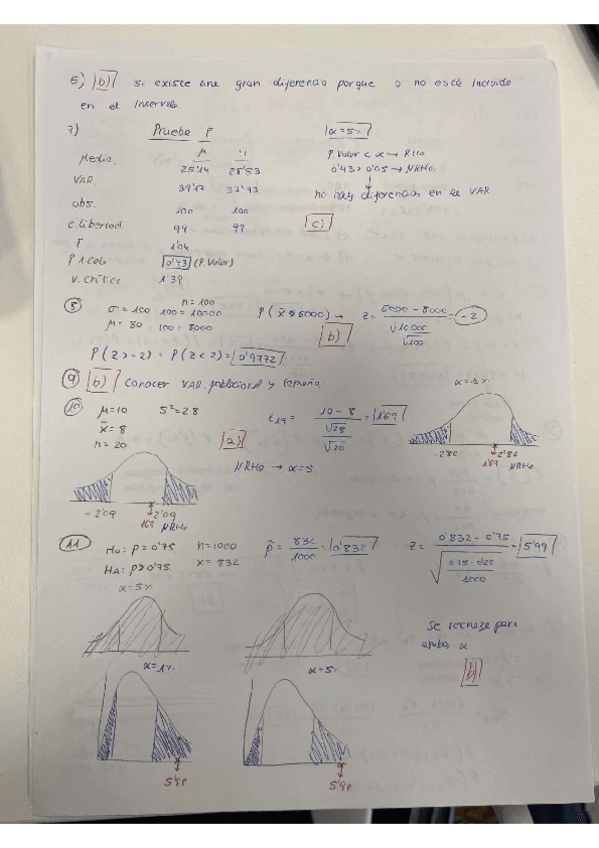 6) b) si existe una gran diferencia porque 0 no está incluido
en el intervalo
7) Prueba F
α=5%
Media. 25'14 25'53
VAR 39'17 37'73
obs. 100 100
c. libertad 99 99
F 1'04
P 1 cola 0'43 (P.Valor)
V. crítico 1'39
P.Valor < α → RHo
0'43 > 0'05 → NRHo.
no hay diferencias en la VAR
c)
8 n=100
σ = 100·100 = 10000
μ = 80·100 = 8000
z = 6000 - 8000 = -2
√10.000
√100
b)
P(z>-2) = P(z<2) = 0'9772
9 b) Conocer VAR. poblacional y tamaño
10 μ=10 S²=28
x̄ = 8
n = 20
t19 = 10 - 8 = 1'69
√28
√20
a)
NRHo → α=5
α=1%
-2'86 2'86
1'69 NRHo
-2'09 2'09
1'69 NRHo
11 Ho: p=0'75 n=1000
HA: p>0'75 x = 832
α=5%
p̂ = 832 = 0'832
1000
z = 0'832 - 0'75 = 5'99
√0'75·0'25
1000
α=1% α=5%
Se rechaza para
ambos α
b)
5'99 5'99